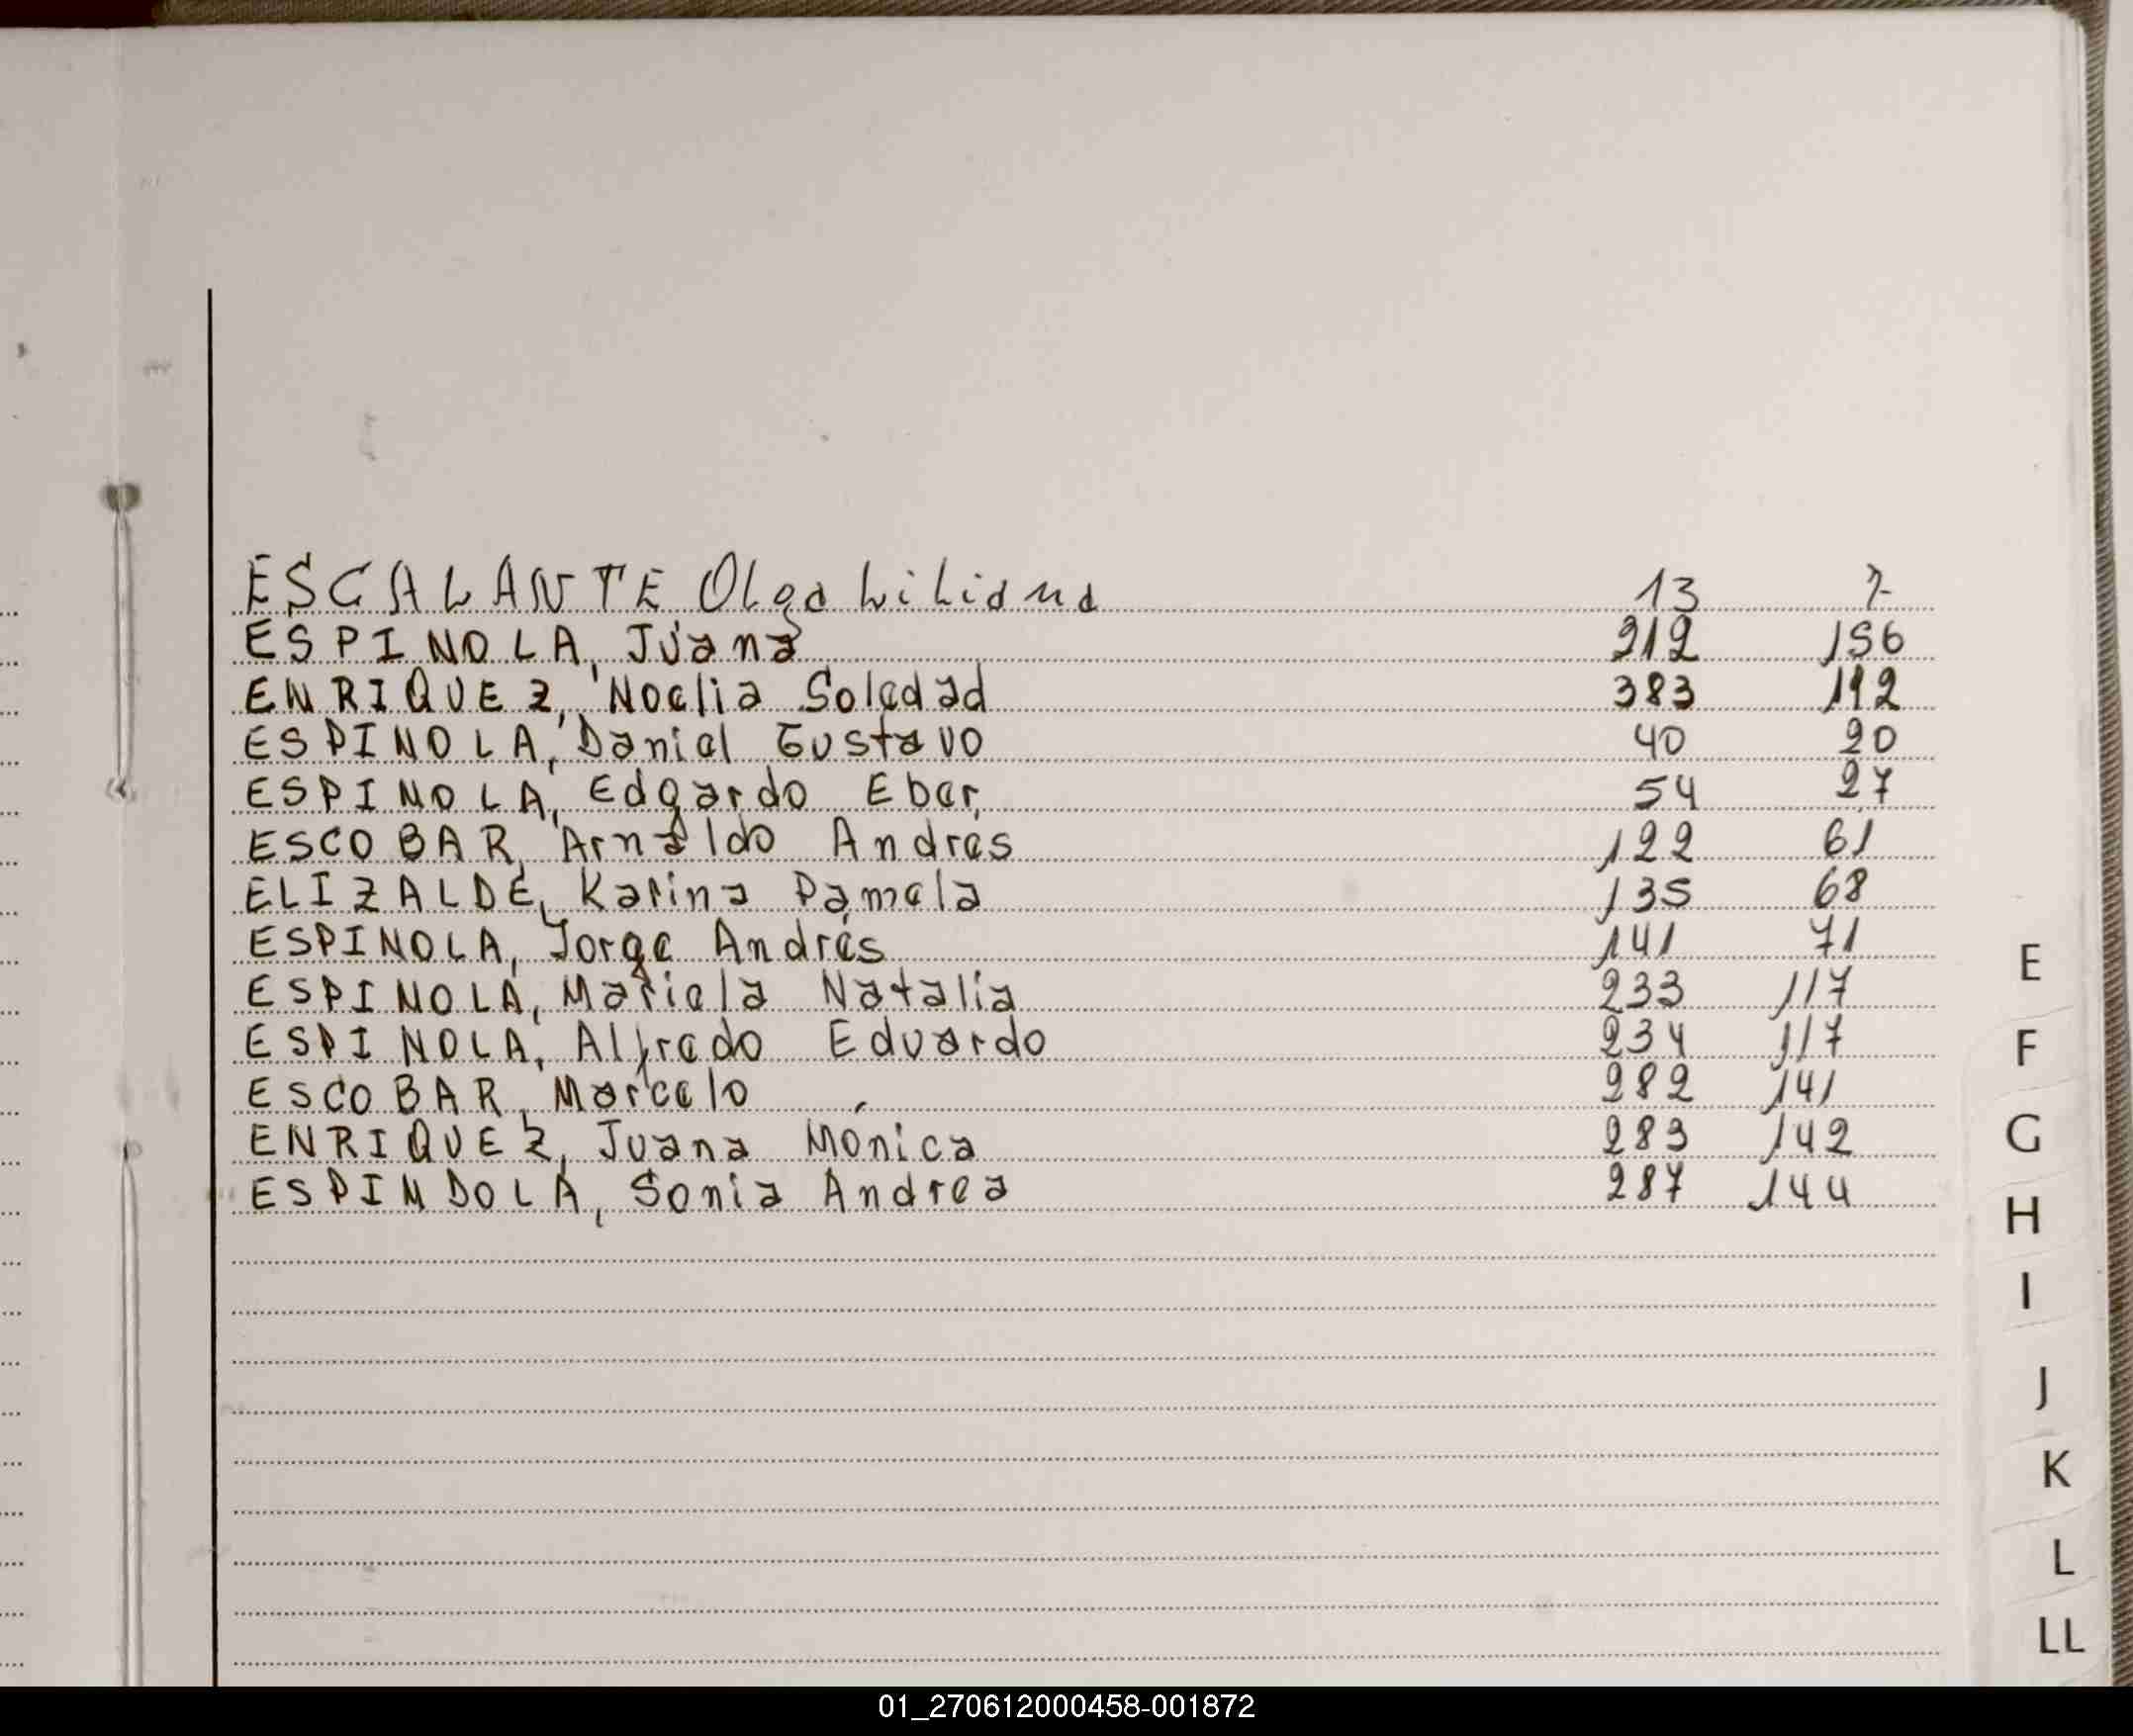 ESCALANTE Olga Liliana 13 7
ESPINOLA, Juana 212 156
ENRIQUEZ, Noelia Soledad 383 192
ESPINOLA, Daniel Gustavo 40 20
ESPINOLA, Edgardo Eber 54 27
ESCOBAR, Arnaldo Andres 122 61
ELIZALDE, Karina Pamela 135 68
ESPINOLA, Jorge Andrés 141 71
ESPINOLA, Mariela Natalia 233 117
ESPINOLA, Alfredo Eduardo 234 117
ESCOBAR, Marcelo 282 141
ENRIQUEZ, Juana Mónica 283 142
ESPINDOLA, Sonia Andrea 287 144
E
F
G
H
I
J
K
L
LL
01_270612000458-001872